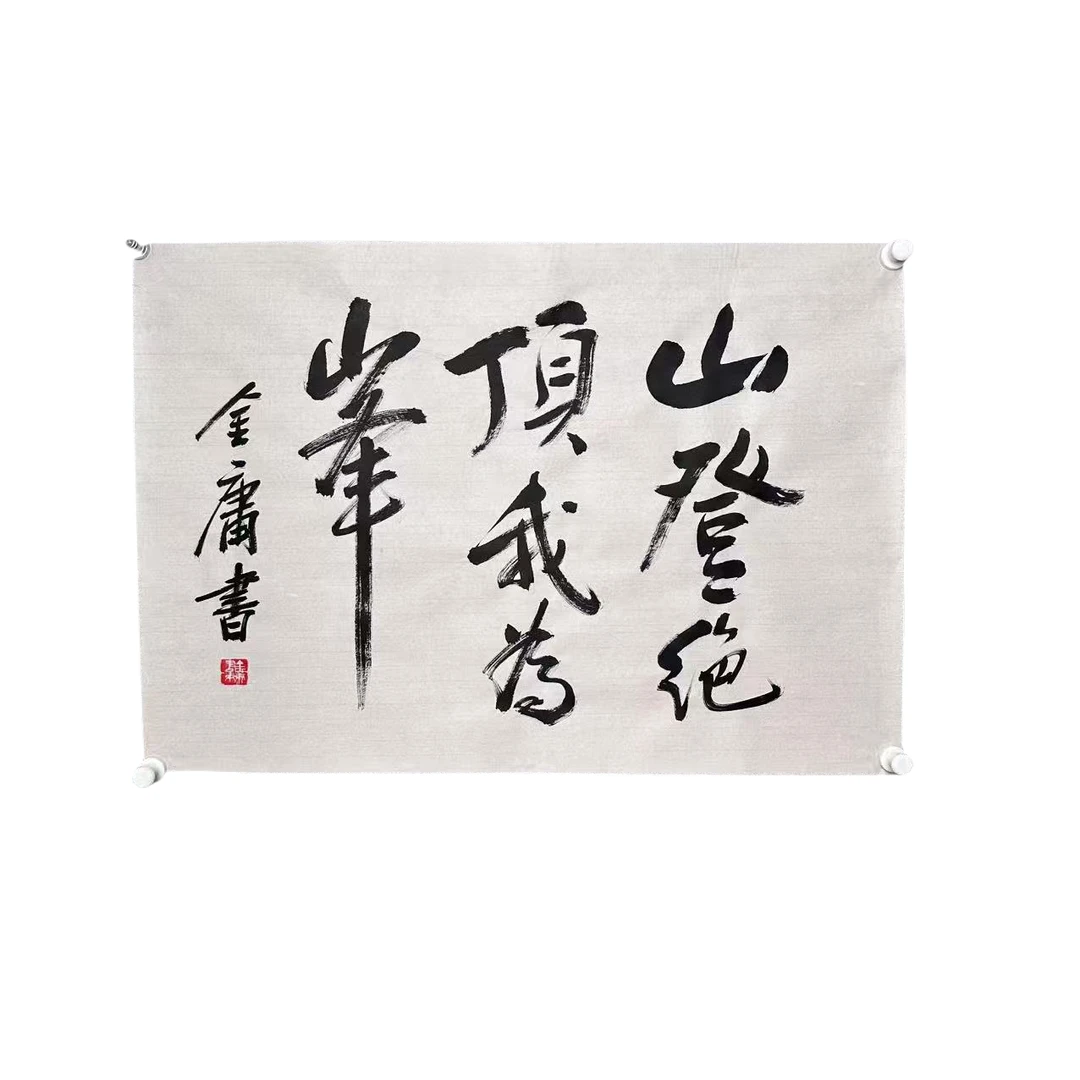 山登绝
頂我為
峯
金庸書